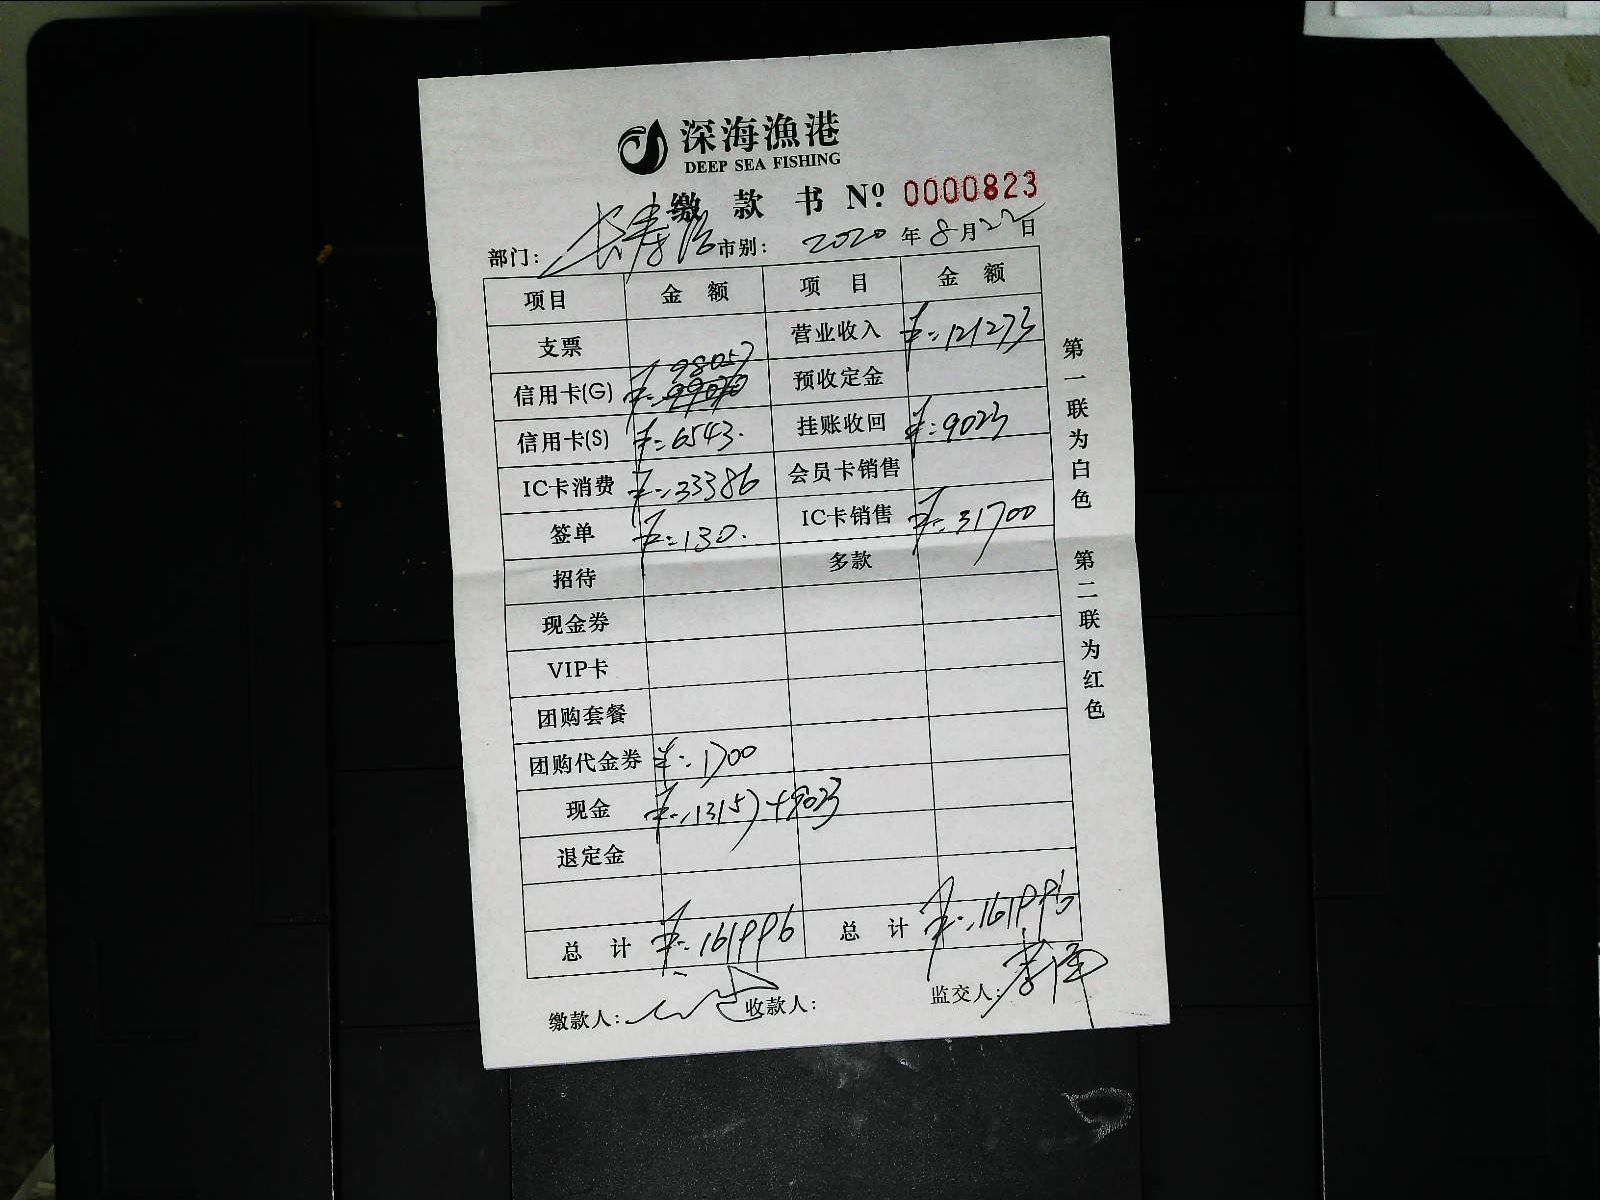 深海漁港
DEEP SEA FISHING
缴款书 Nº 0000823
部门: 长寿路 市别: 2020年8月22日
项目 金额 项目 金额
支票 营业收入 ¥:121273
信用卡(G) ¥:98057 预收定金
信用卡(S) ¥:6543. 挂账收回 ¥:9023
IC卡消费 ¥:33386 会员卡销售
签单 ¥:130. IC卡销售 ¥:31700
招待 多款
现金券
VIP卡
团购套餐
团购代金券 ¥:1700
现金 ¥:13157+9023
退定金
总计 ¥:161996 总计 ¥:161996
缴款人: 收款人: 监交人:
第一联为白色 第二联为红色